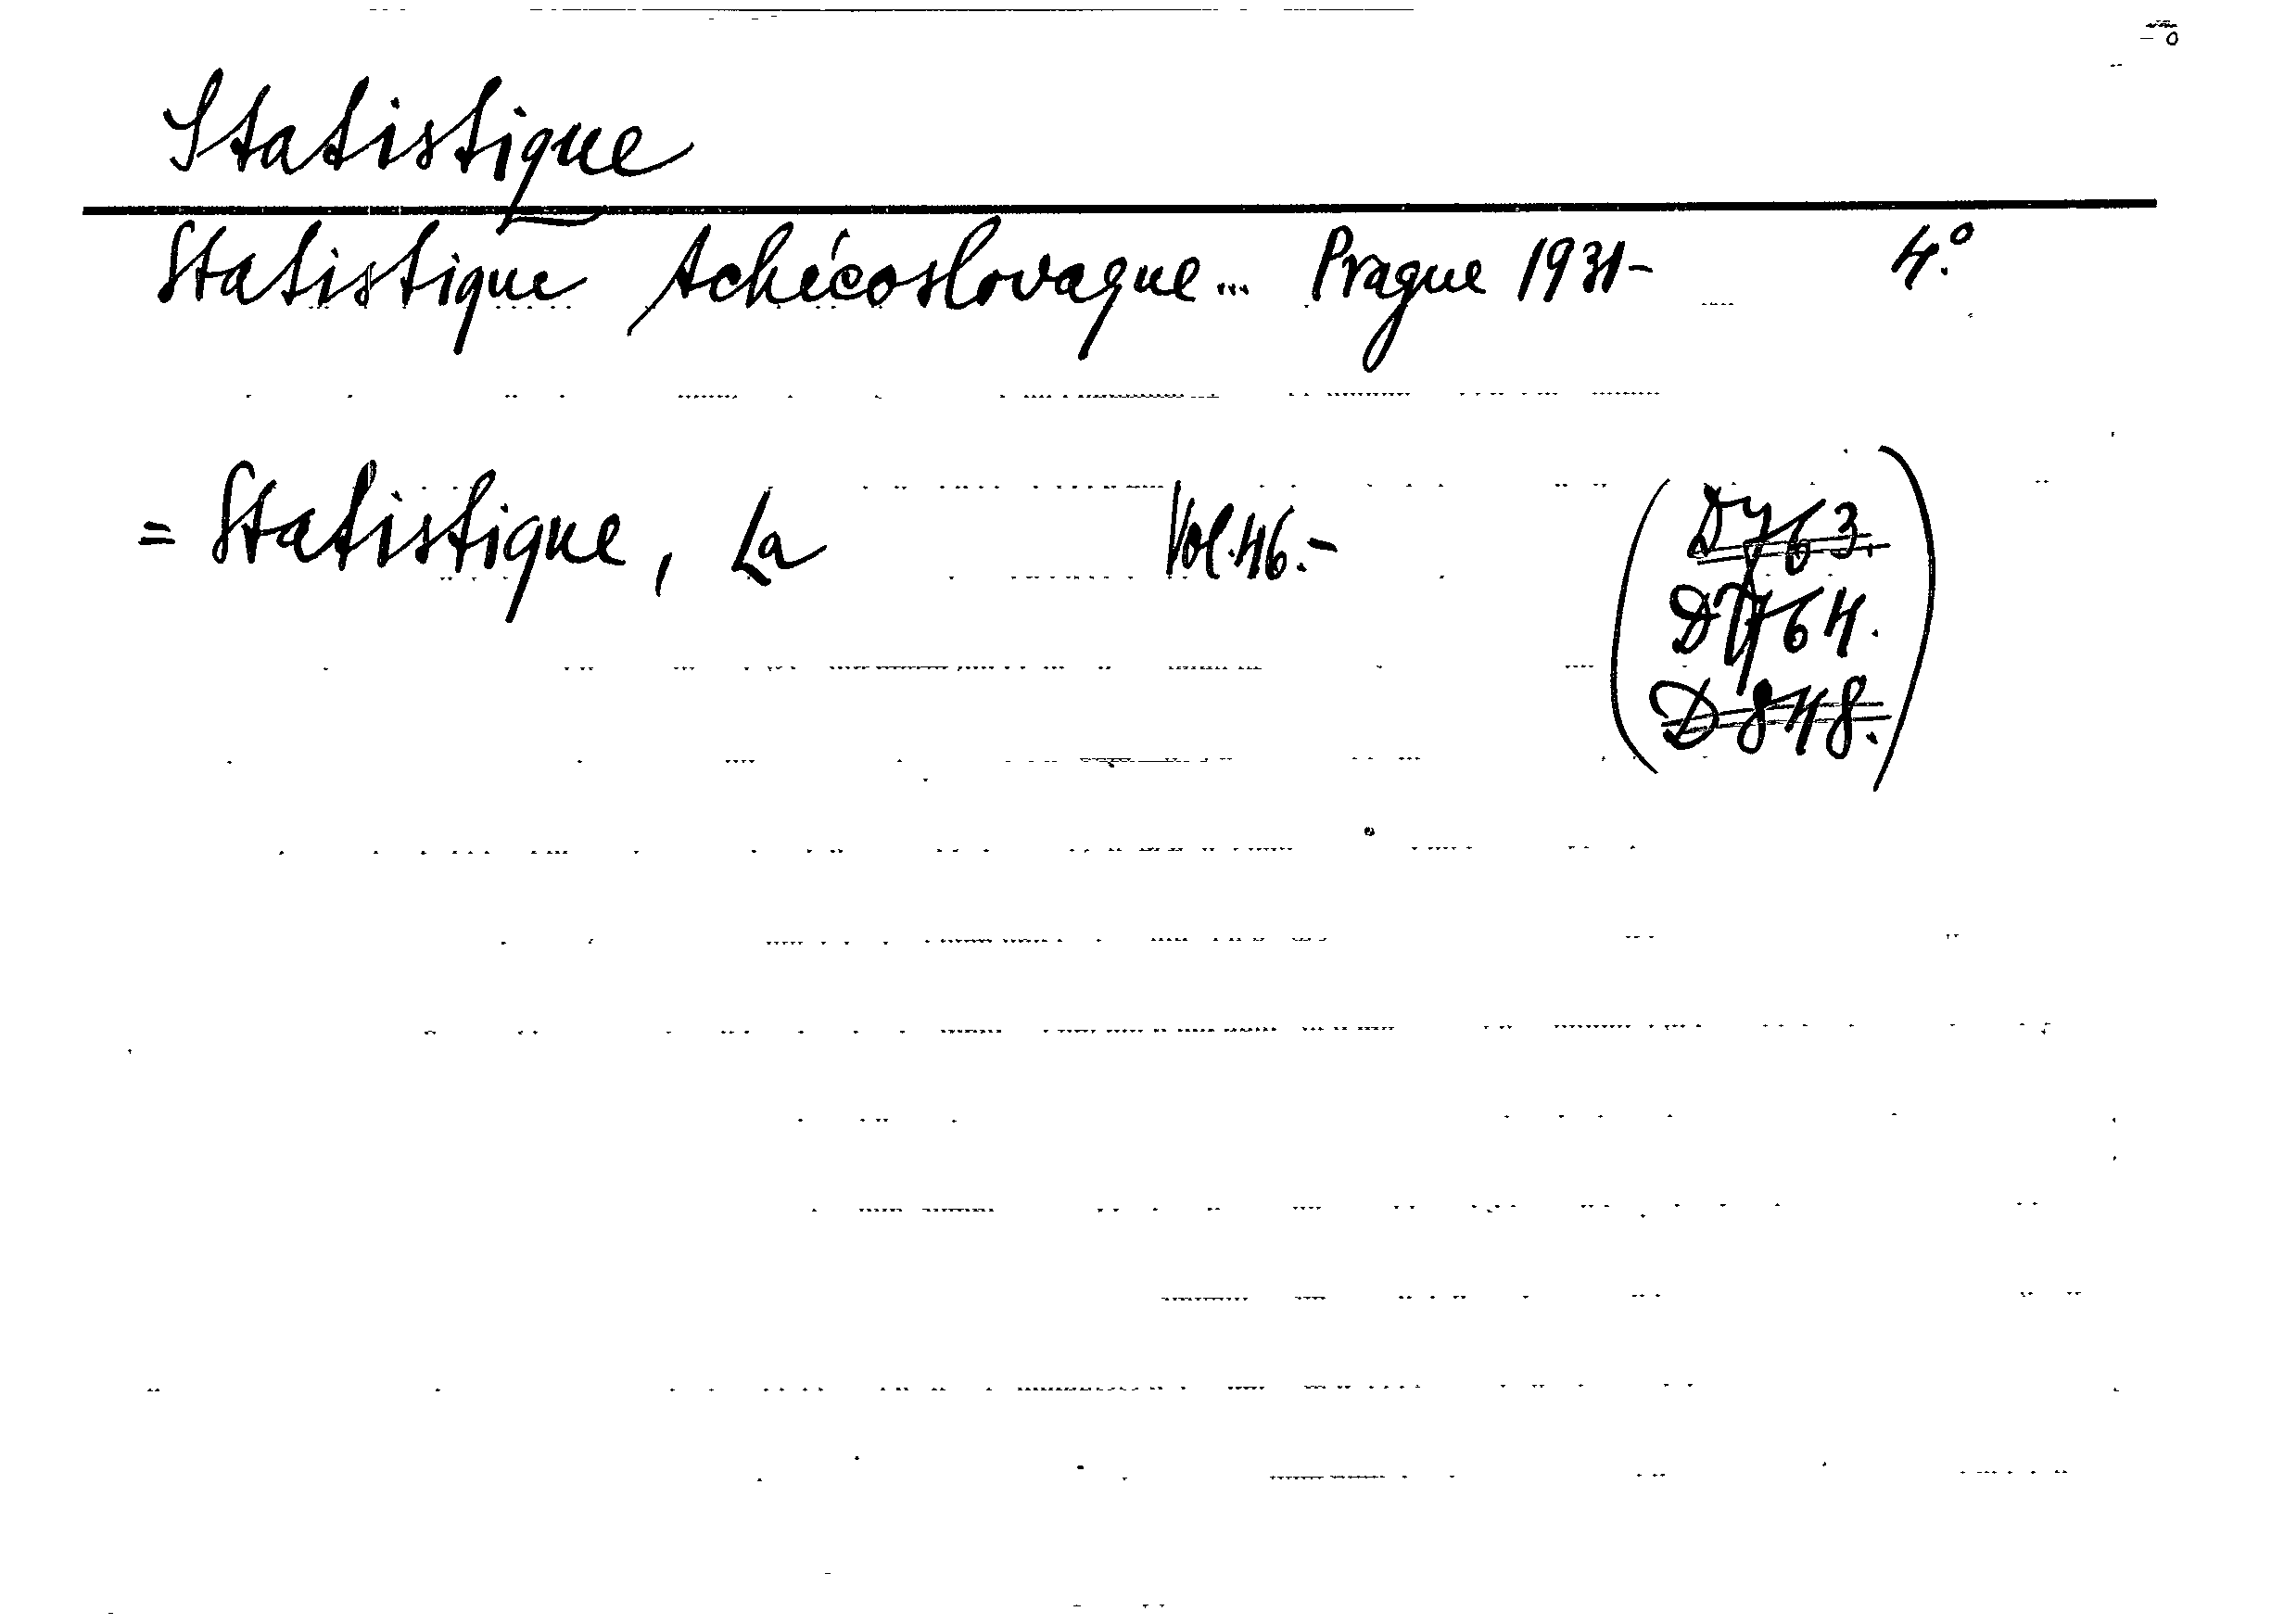 Statistique
Statistique tchécoslovaque... Prague 1931- 4.°
= Statistique, La Vol. 46.- (D 763.
D 764.
D 848.)